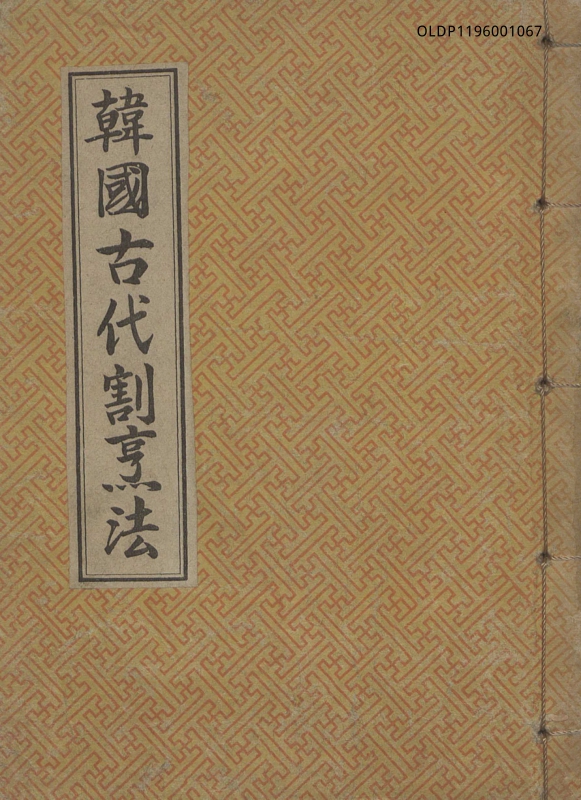 OLDP1196001067
韓國古代割烹法